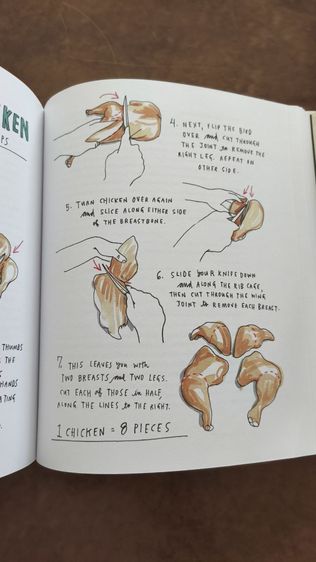 KEN
PS
4. NEXT, FLIP THE BIRD
OVER and CUT THROUGH
THE JOINT to REMOVE THE
RIGHT LEG. REPEAT ON
OTHER SIDE.
5. THAN CHICKEN OVER AGAIN
and SLICE ALONG EITHER SIDE
of THE BREASTBONE.
6. SLIDE YOUR KNIFE DOWN
and ALONG THE RIB CAGE,
THEN CUT THROUGH THE WING
JOINT to REMOVE EACH BREAST.
THUMBS
THE
HANDS
ATING
7. THIS LEAVES you with
TWO BREASTS and TWO LEGS.
CUT EACH of THOSE in HALF,
ALONG THE LINES to THE RIGHT.
1 CHICKEN = 8 PIECES